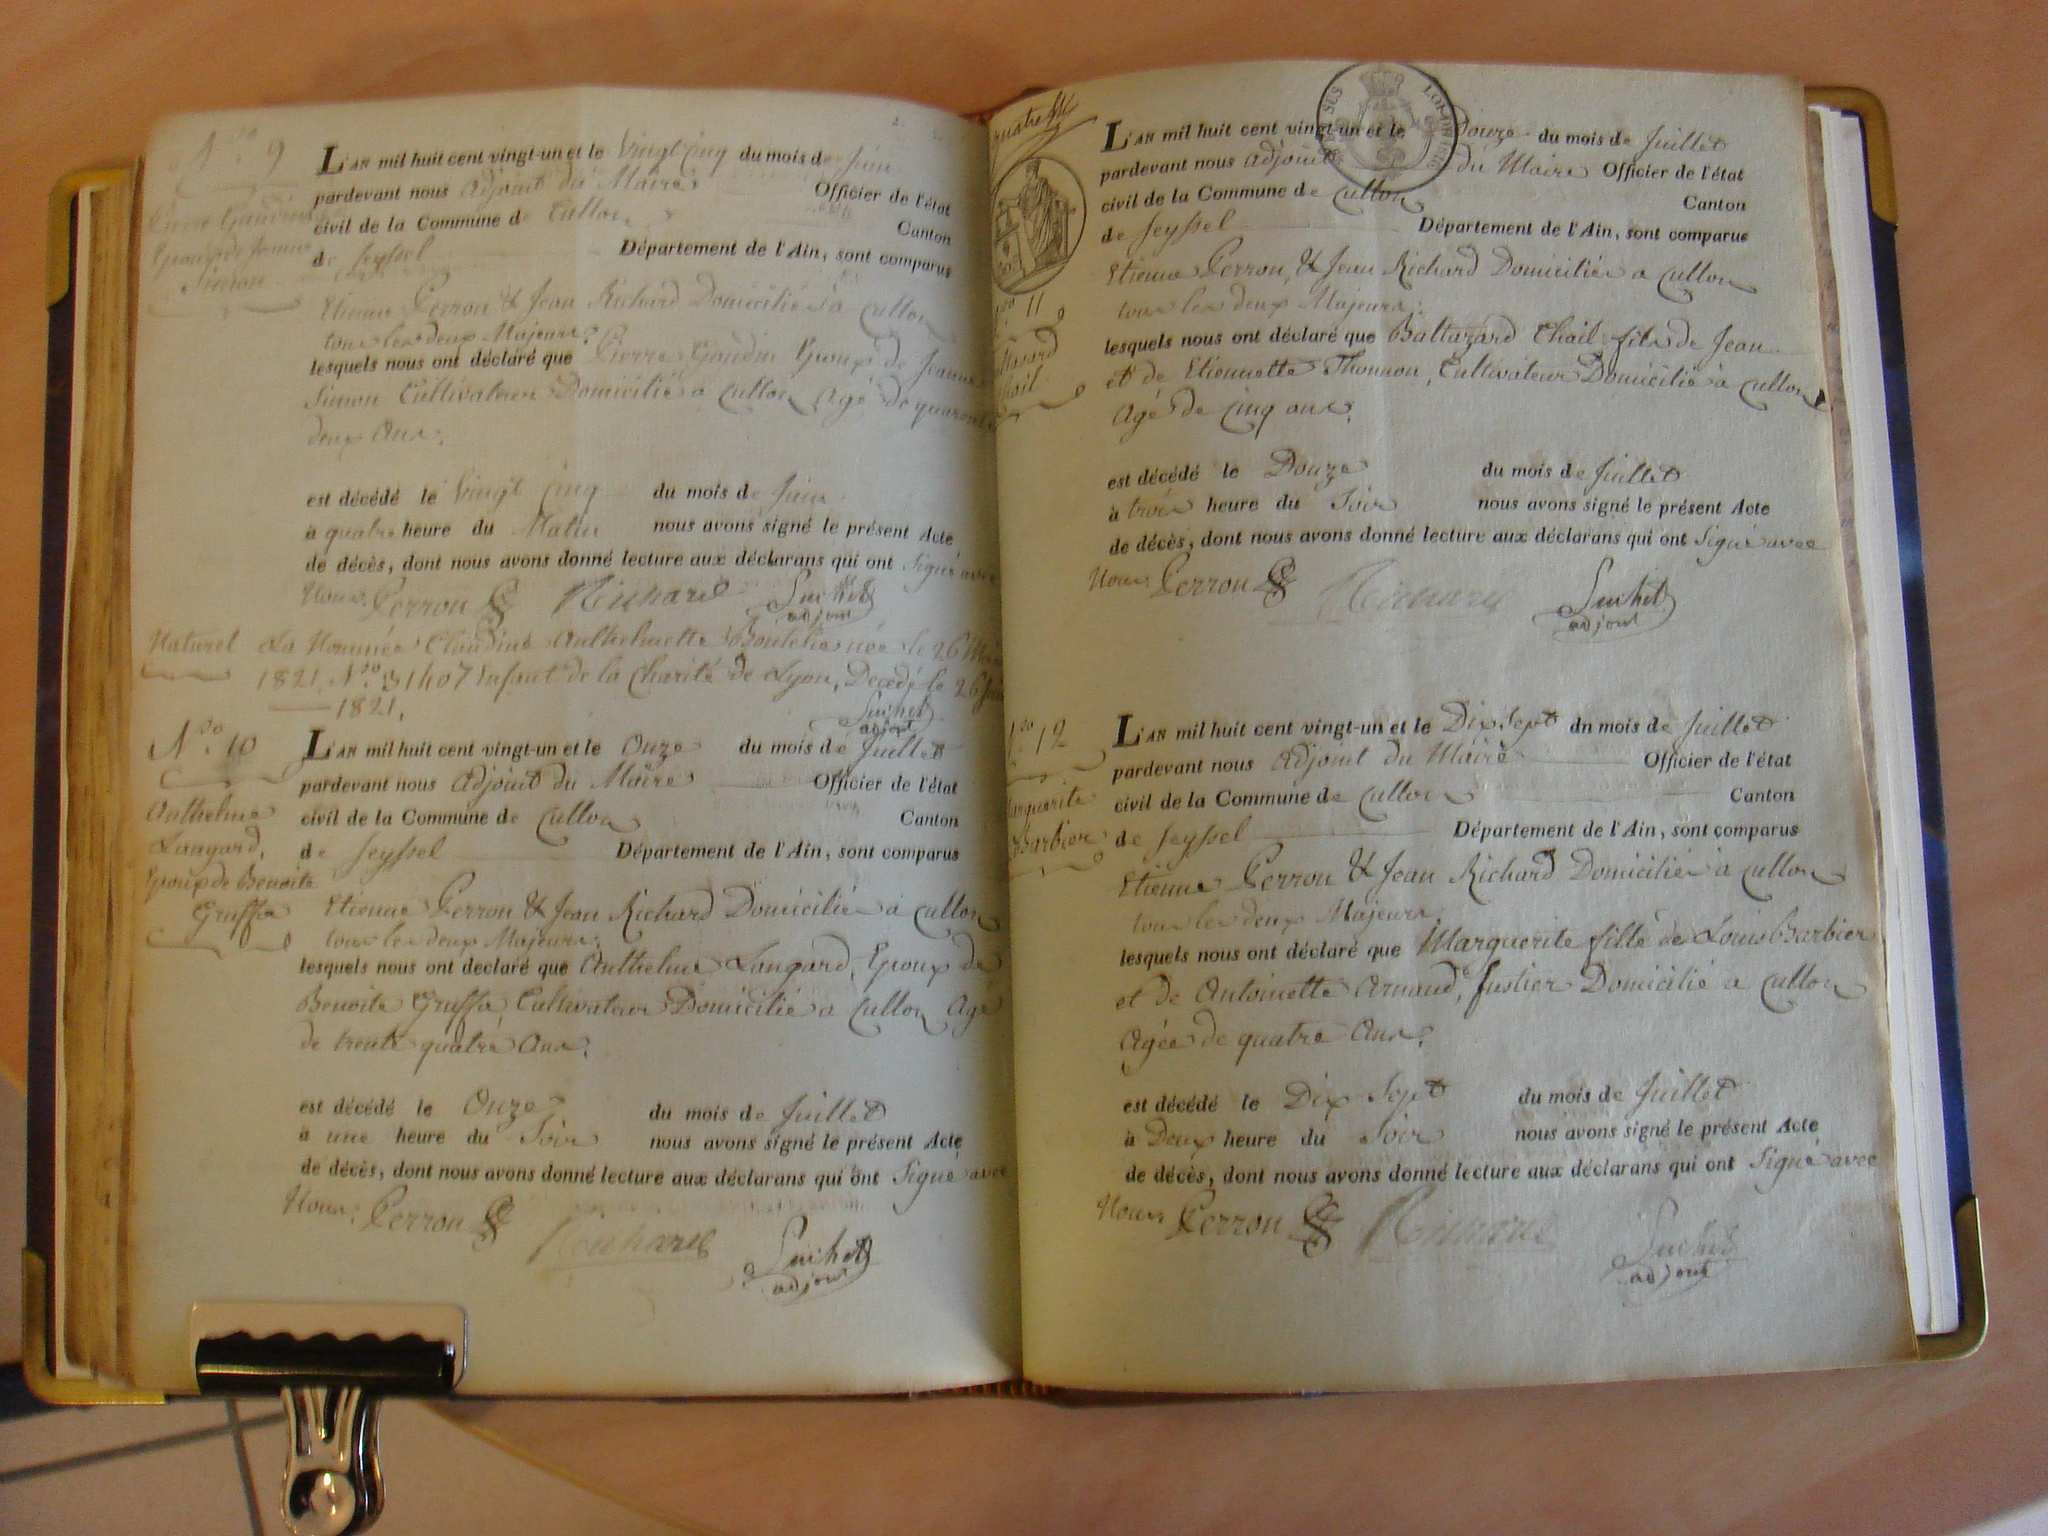 N.ro 9
Pierre Gaudin
Epoux de Jeanne
Simon
L'AN mil huit cent vingt-un et le Vingt cinq du mois de Juin
pardevant nous Adjoint du Maire Officier de l'état
civil de la Commune de Culloz Canton
de Seyssel Département de l'Ain, sont comparus
Etienne Perron & Jean Richard Domiciliés à Culloz
tous les deux Majeurs;
lesquels nous ont déclaré que Pierre Gaudin Epoux de Jeanne
Simon Cultivateur Domicilié a Culloz Agé de quarante
deux Ans;
est décédé le Vingt cinq du mois de Juin
à quatre heure du Matin nous avons signé le présent Acte
de décès, dont nous avons donné lecture aux déclarans qui ont Signé avec
Nous; Perron Richard Suchet
adjoint
Naturel La Nommée Claudine Anthelmette née le 26 Mai
1821 N.ro 31407 Enfant de la Charité de Lyon, Decedé le 26 Juin
1821.
Suchet
adjoint
N.ro 10
Anthelme
Langard,
Epoux de Benoite
Gruffa
L'AN mil huit cent vingt-un et le Onze du mois de Juillet
pardevant nous Adjoint du Maire Officier de l'état
civil de la Commune de Culloz Canton
de Seyssel Département de l'Ain, sont comparus
Etienne Perron & Jean Richard Domiciliés a Culloz
tous les deux Majeurs;
lesquels nous ont déclaré que Anthelme Langard, Epoux de
Benoite Gruffa Cultivateur Domicilié a Culloz Agé
de trente quatre Ans;
est décédé le Onze du mois de Juillet
à une heure du Soir nous avons signé le présent Acte
de décès, dont nous avons donné lecture aux déclarans qui ont Signé avec
Nous; Perron Richard Suchet
adjoint
quatre
N.ro 11
L'AN mil huit cent vingt-un et le Douze du mois de Juillet
pardevant nous Adjoint du Maire Officier de l'état
civil de la Commune de Culloz Canton
de Seyssel Département de l'Ain, sont comparus
Etienne Perron, & Jean Richard Domiciliés a Culloz
tous les deux Majeurs;
lesquels nous ont déclaré que Baltazard Chail fils de Jean
et de Etiennette Thonnon, Cultivateur Domicilié à Culloz
Agé de cinq ans;
est décédé le Douze du mois de Juillet
à trois heure du Soir nous avons signé le présent Acte
de décès, dont nous avons donné lecture aux déclarans qui ont Signé avec
Nous; Perron Richard Suchet
adjoint
12
Marguerite
Barbier
L'AN mil huit cent vingt-un et le Dix Sept dn mois de Juillet
pardevant nous Adjoint du Maire Officier de l'état
civil de la Commune de Culloz Canton
de Seyssel Département de l'Ain, sont comparus
Etienne Perron & Jean Richard Domiciliés à Culloz
tous les deux Majeurs;
lesquels nous ont déclaré que Marguerite fille de Louis Barbier
et de Antoinette Arnaud, fustier Domicilié a Culloz
Agée de quatre Ans;
est décédé le Dix Sept du mois de Juillet
à Deux heure du Soir nous avons signé le présent Acte
de décès, dont nous avons donné lecture aux déclarans qui ont Signé avec
Nous; Perron Richard Suchet
adjoint